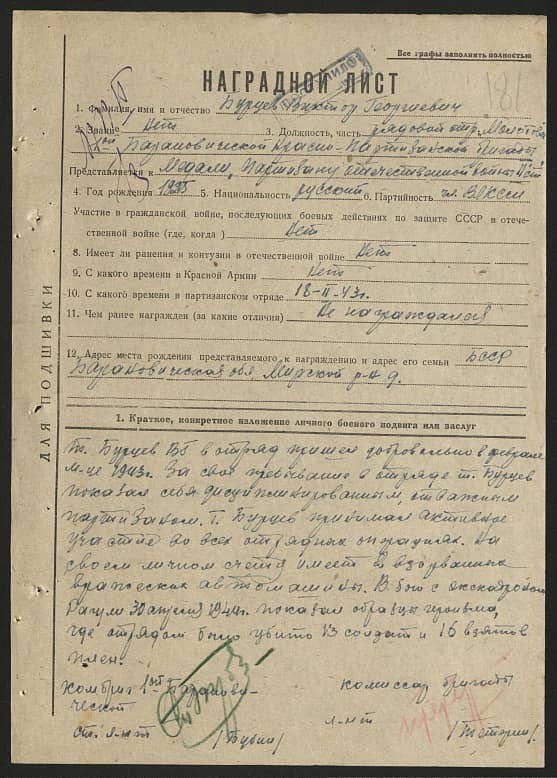 Все графы заполнять полностью
181
НАГРАДНОЙ ЛИСТ
1. Фамилия, имя и отчество Бурцев Виктор Георгиевич
2. Звание Нет 3. Должность, часть рядовой отр.
1ой Барановической Краснопартизанской бригады
Представляется к Медали, Партизану отечественной войны II ст
4. Год рождения 1925 5. Национальность русский 6. Партийность чл. ВЛКСМ
Участие в гражданской войне, последующих боевых действиях по защите СССР в отече-
ственной войне (где, когда) Нет
8. Имеет ли ранения и контузии в отечественной войне Нет
9. С какого времени в Красной Армии Нет
10. С какого времени в партизанском отряде 18-II-43г.
11. Чем ранее награжден (за какие отличия) Не награждался
12. Адрес места рождения представляемого к награждению и адрес его семьи БССР
Барановическая обл Мирской р-н д.
ДЛЯ ПОДШИВКИ
1. Краткое, конкретное изложение личного боевого подвига или заслуг
Т. Бурцев ВГ в отряд пришел добровольно в феврале
м-це 1943г. За свое пребывание в отряде т. Бурцев
показал себя дисциплинированным, отважным
партизаном. Т. Бурцев принимал активное
участие во всех отрядных операциях. На
своем личном счету имеет 2 взорванных
вражеских автомашины. В бою с
30 апреля 1944г. показал образцы героизма,
где отрядом было убито 13 солдат и 16 взятов
плен.
Комбриг 1ой Баранови-
ческой
ст. л-нт
комиссар бригады
л-нт